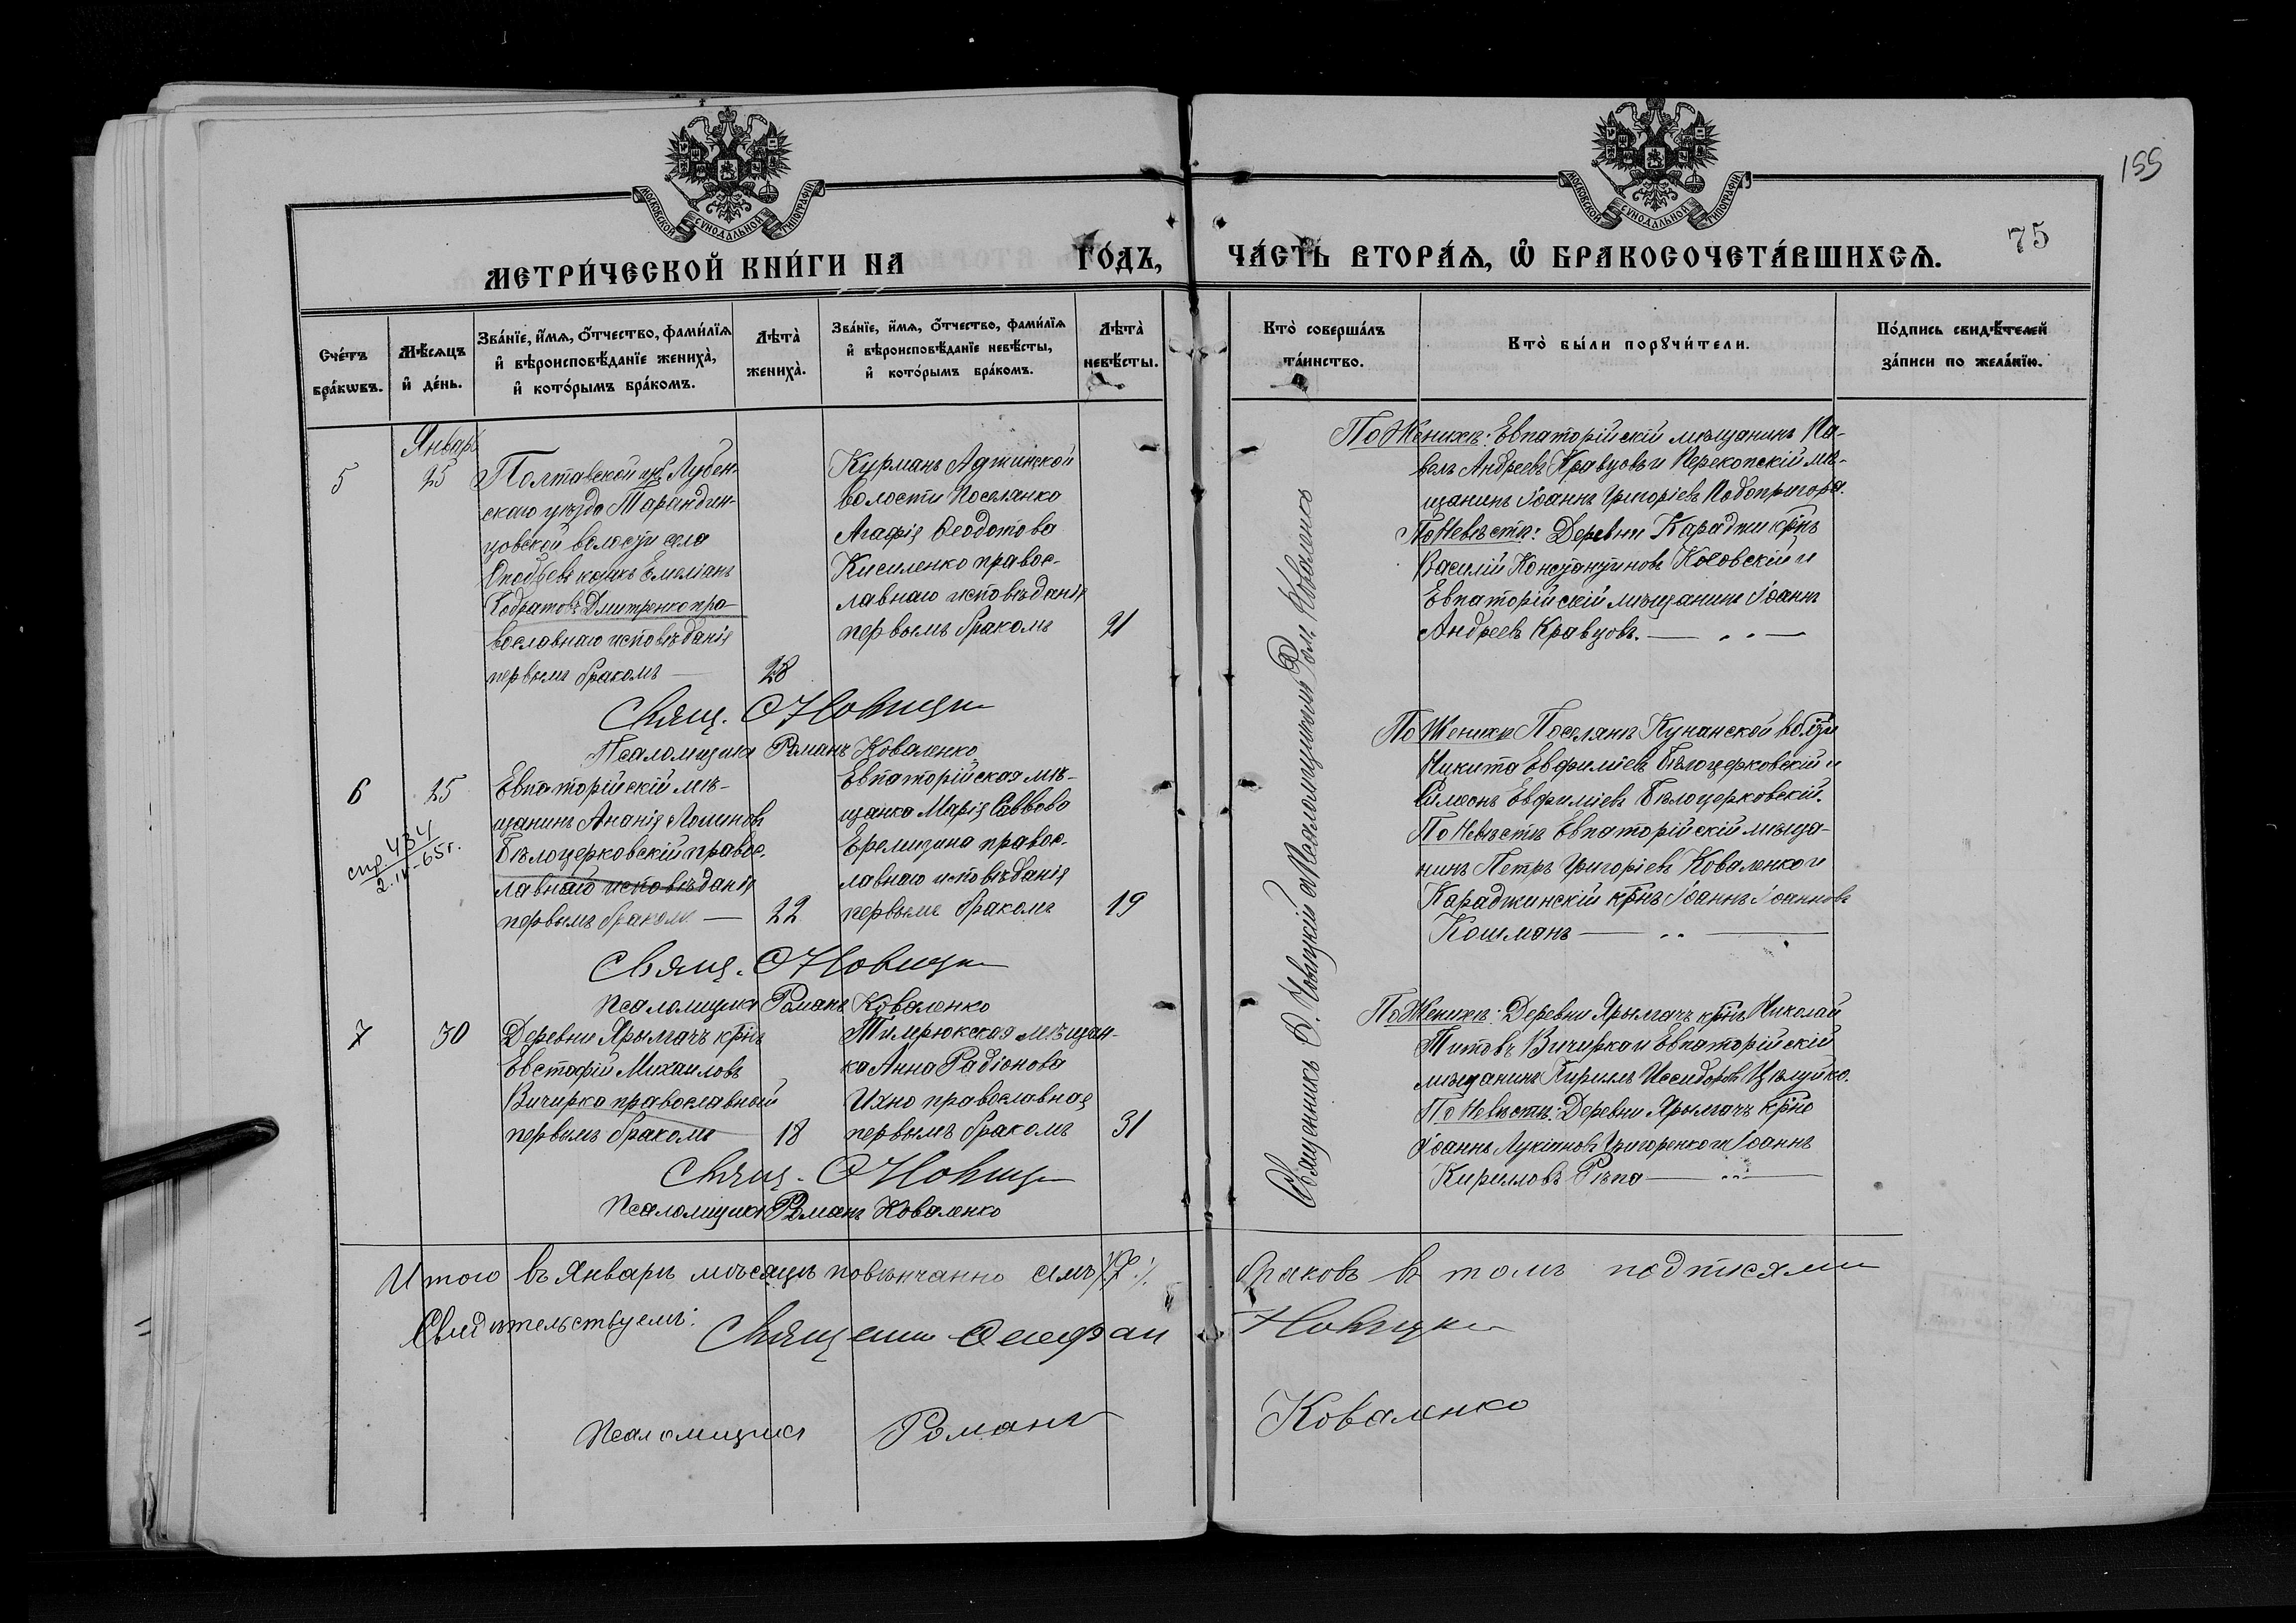 155
75
МОСКОВСКОЙ СѴНОДАЛЬНОЙ ТИПОГРАФІИ
МОСКОВСКОЙ СѴНОДАЛЬНОЙ ТИПОГРАФІИ
МЕТРИ́ЧЕСКОЙ КНИ́ГИ НА ГО́ДЪ,
ЧА́СТЬ ВТОРА́Ѧ, Ѽ БРАКОСОЧЕТА́ВШИХСѦ.
Сче́тъ бра́кѡвъ.
Мѣ́сѧцъ и҆ де́нь.
Зва́нїе, и҆́мѧ, ѻ҆́тчество, фами́лїѧ и҆ вѣроисповѣ́данїе жениха̀, и҆ кото́рымъ бра́комъ.
Лѣ́та̀ жениха̀.
Зва́нїе, и҆́мѧ, ѻ҆́тчество, фами́лїѧ и҆ вѣроисповѣ́данїе невѣ́сты, и҆ кото́рымъ бра́комъ.
Лѣ́та̀ невѣ́сты.
Кто̀ соверша́лъ та́инство.
Кто̀ бы́ли порꙋчи́тели.
По́дпись свидѣ́телей за́писи по жела́нїю.
Январь
5
25
Полтавской губ Лубен-
скаго уѣзда Тарандин-
цовской волости села
козакъ Емеліанъ
Кодратовъ Дмитренко пра-
вославнаго исповѣданія
первымъ бракомъ —
28
Курманъ Аджинской
волости Поселянка
Агафія Ѳеодотова
Кисиленко правос-
лавнаго исповѣданія
первымъ бракомъ
21
По Женихѣ: Евпаторійскій мѣщанинъ Па-
велъ Андреевъ Кравцовъ и Перекопскій мѣ-
щанинъ Іоаннъ Григоріевъ Подопригора.
По Невѣстѣ: Деревни Караджи крнъ
Василій Константиновъ Косовскій и
Евпаторійскій мѣщанинъ Іоаннъ
Андреевъ Кравцовъ. —
Свящ. С Новицки
Псаломщикъ Романъ Коваленко
6
25
спр. 434
2.IV-65г.
Евпаторійскій мѣ-
щанинъ Ананія Логиновъ
Бѣлоцерковскій правос-
лавнаго исповѣданія
первымъ бракомъ —
22
Евпаторійская мѣ-
щанка Марія Саввова
Еремизина правос-
лавнаго исповѣданія
первымъ бракомъ
19
По Женихѣ Поселянъ Кунанской волости
Никита Евфиміевъ Бѣлоцерковскій и
Симеонъ Евфиміевъ Бѣлоцерковскій.
По Невѣстѣ Евпаторійскій мѣща-
нинъ Петръ Григоріевъ Коваленко и
Караджинскій крнъ Іоаннъ Іоанновъ
Кошманъ —
Свящ. С Новицки
Псаломщикъ Романъ Коваленко
7
30
Деревни Ярылгачъ крнъ
Евстафій Михаиловъ
Вичирка православный
первымъ бракомъ
18
Тимрюкская мѣщан-
ка Анна Радіонова
Ихно православная
первымъ бракомъ
31
По Женихѣ: Деревни Ярылгачъ крнъ Николай
Титовъ Вичирка и Евпаторійскій
мѣщанинъ Кириллъ Иссидоровъ Цѣлуйко.
По Невѣстѣ: Деревни Ярылгачъ крне
Іоаннъ Лукіановъ Григоренко и Іоаннъ
Кирилловъ Рѣпа —
Свящ. С Новицки
Псаломщикъ Романъ Коваленко
Священникъ С. Новицкій Псаломщикъ Ром. Коваленко
Итого въ Январѣ мѣсяцѣ повѣнчанно семь /:7:/ браковъ в томъ подписями
Свидѣтельствуемъ: Священник Стефан Новицки
Псаломщикъ Романъ Коваленко